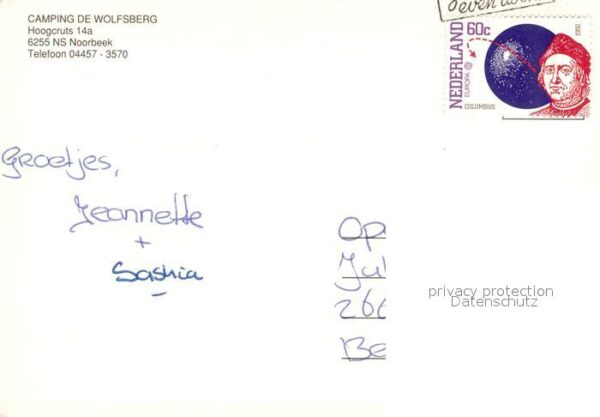 CAMPING DE WOLFSBERG
Hoogcruts 14a
6255 NS Noorbeek
Telefoon 04457 - 3570
NEDERLAND 60c
EUROPA
COLUMBUS
1992
Groetjes,
Jeannette
+
Saskia
Op
Jul
266
Be
privacy protection
Datenschutz